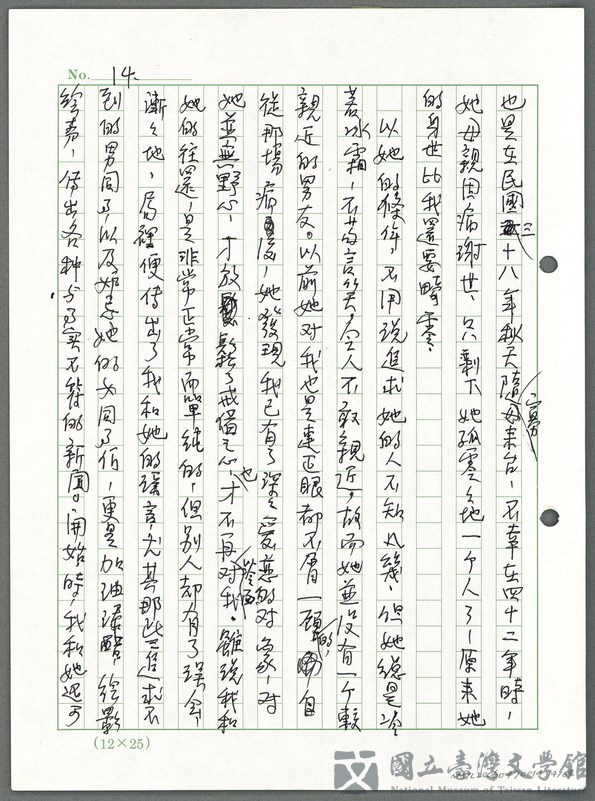 No. 14.
也是在民國三十八年秋天隨寡母來台,不幸在四十二年時,
她母親因病謝世,只剩下她孤零零地一个人了!原來她
的身世比我還要畸零。
以她的條件,不用說追求她的人不知凡幾,但她總是冷
若冰霜,不苟言笑,令人不敢親近,故而她並沒有一个較
親近的男友。以前她对我也是連正眼都不屑一顧的,自
從那場病後,她發現我已有了深深愛慕的对象,对
她並無野心,才放鬆了戒備之心,也才不再对我冷面。雖說我和
她的往還,是非常正常而單純的,但別人却有了误会,
漸漸地,局裡便傳出了我和她的謠言,尤其那些追求不
到的男同事,以及妒忌她的女同事们,更是加油添醋,绘影
绘声,傳出各种与事实不符的新聞。開始時,我和她还可
(12×25)
國立臺灣文學館
National Museum of Taiwan Literature